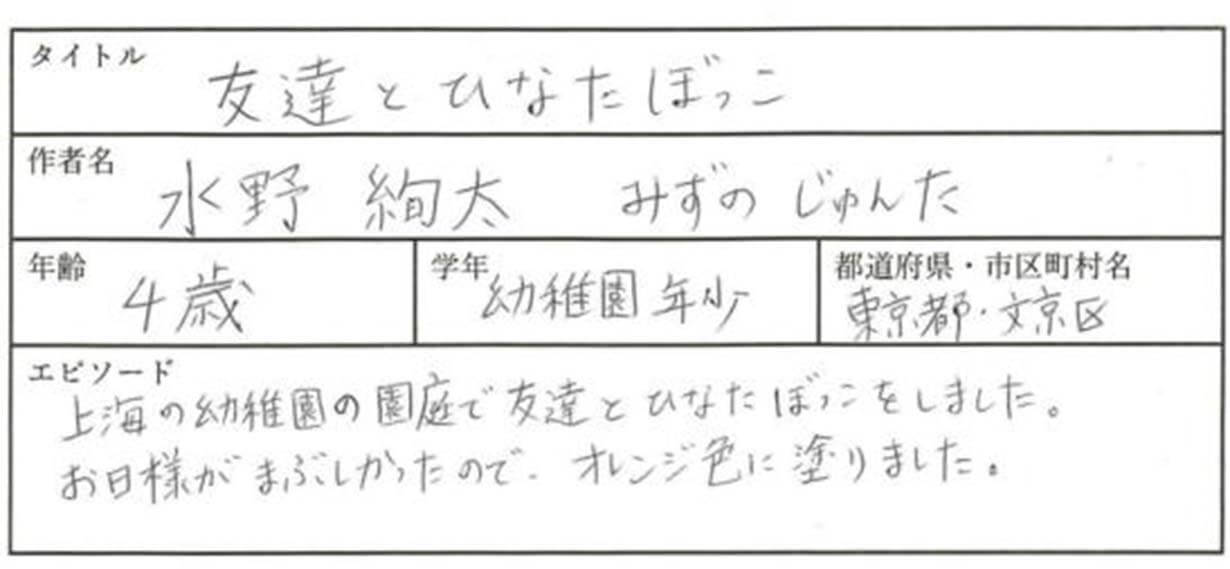 タイトル
友達とひなたぼっこ
作者名
水野 絢太 みずの じゅんた
年齢
4歳
学年
幼稚園 年少
都道府県・市区町村名
東京都・文京区
エピソード
上海の幼稚園の園庭で友達とひなたぼっこをしました。
お日様がまぶしかったので、オレンジ色に塗りました。